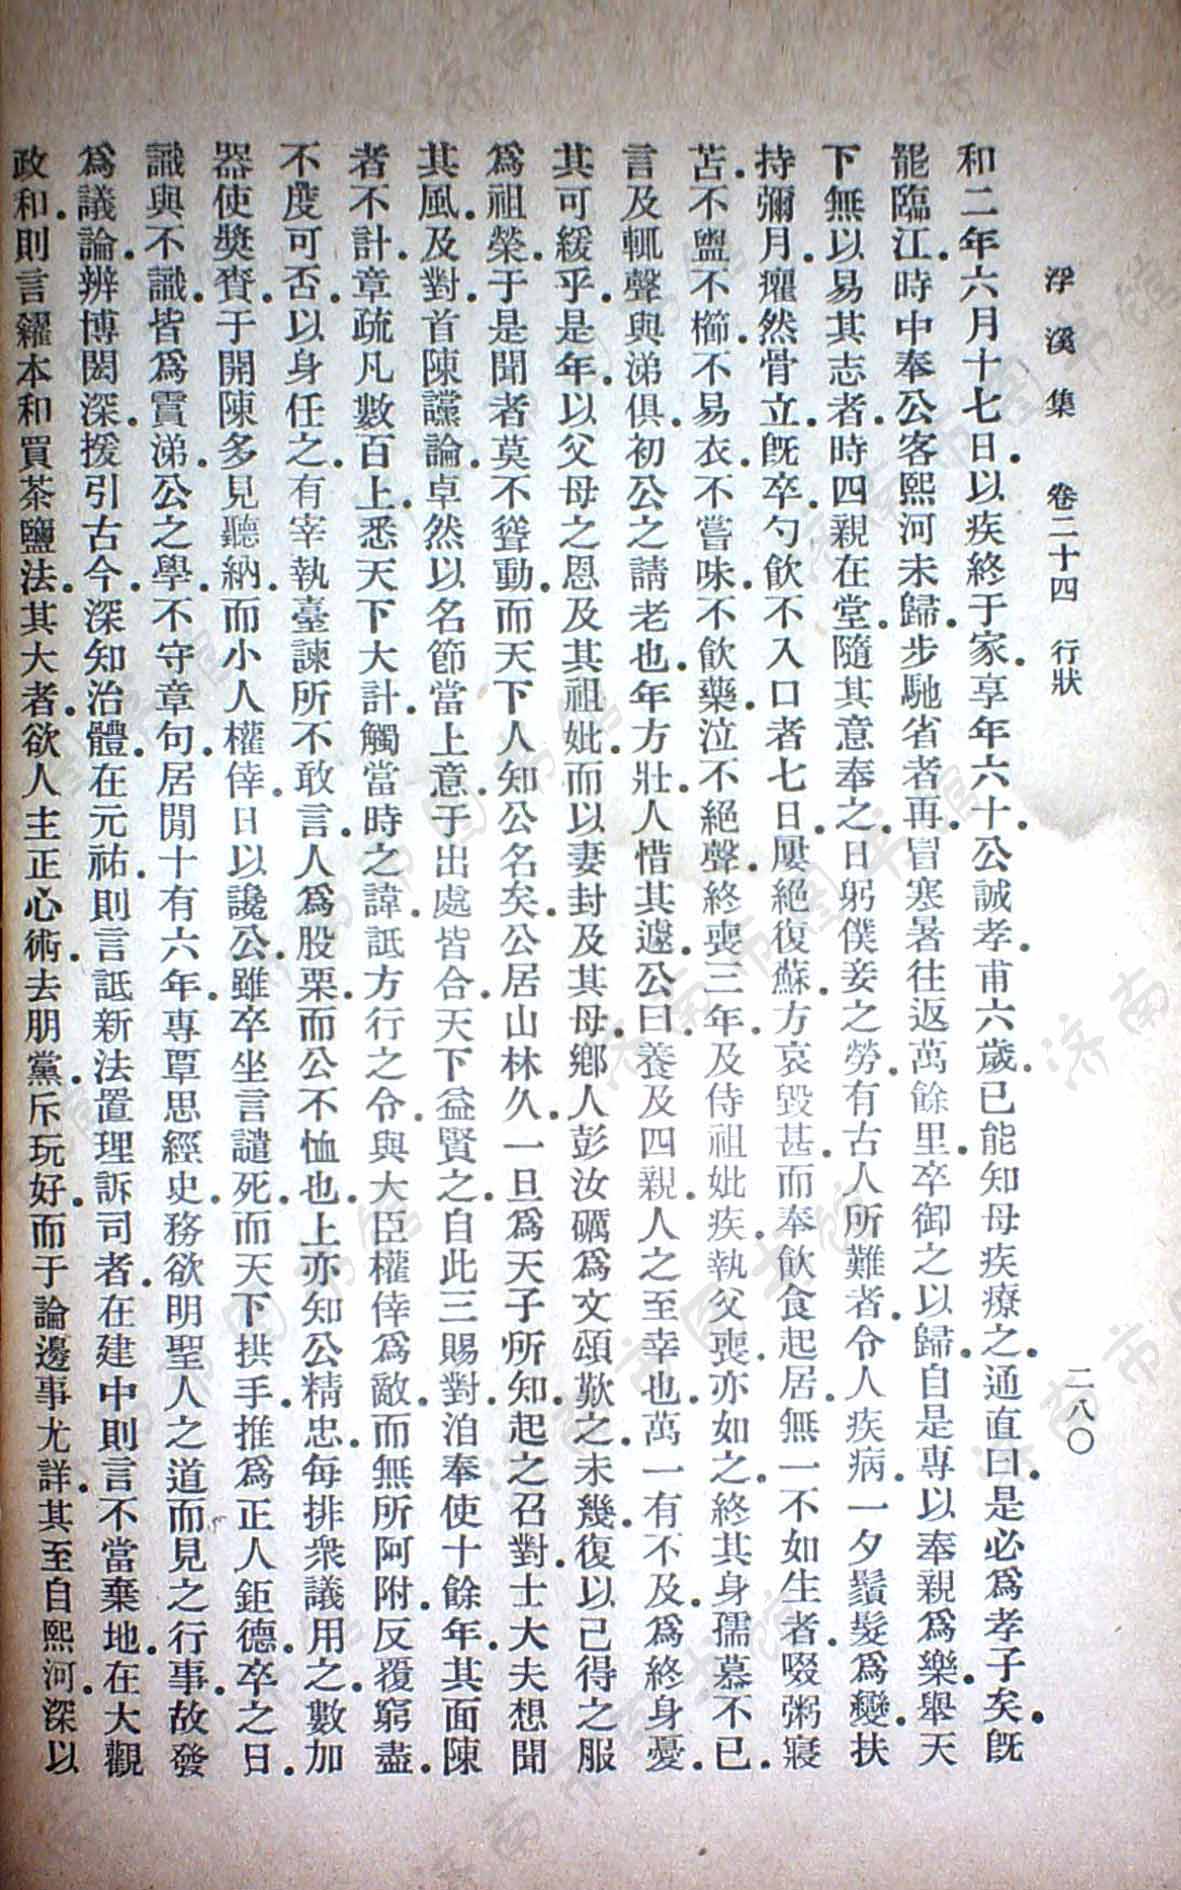 浮溪集 卷二十四 行狀 二八〇
和二年六月十七日以疾終于家享年六十公誠孝甫六歲已能知母疾療之通直曰是必為孝子矣旣
罷臨江時中奉公客熙河未歸步馳省者再冒寒暑往返萬餘里卒御之以歸自是專以奉親為樂舉天
下無以易其志者時四親在堂隨其意奉之日躬僕妾之勞有古人所難者令人疾病一夕鬚髮為變扶
持彌月癯然骨立旣卒勺飲不入口者七日屢絕復蘇方哀毀甚而奉飲食起居無一不如生者啜粥寢
苫不盥不櫛不易衣不嘗味不飲藥泣不絕聲終喪三年及侍祖妣疾執父喪亦如之終其身孺慕不已
言及輒聲與涕俱初公之請老也年方壯人惜其遽公曰養及四親人之至幸也萬一有不及為終身憂
其可緩乎是年以父母之恩及其祖妣而以妻封及其母鄉人彭汝礪為文頌歎之未幾復以己得之服
為祖榮于是聞者莫不聳動而天下人知公名矣公居山林久一旦為天子所知起之召對士大夫想聞
其風及對首陳讜論卓然以名節當上意于出處皆合天下益賢之自此三賜對洎奉使十餘年其面陳
者不計章疏凡數百上悉天下大計觸當時之諱詆方行之令與大臣權倖為敵而無所阿附反覆窮盡
不度可否以身任之有宰執臺諫所不敢言人為股栗而公不恤也上亦知公精忠每排衆議用之數加
器使獎賚于開陳多見聽納而小人權倖日以讒公雖卒坐言譴死而天下拱手推為正人鉅德卒之日
識與不識皆為霣涕公之學不守章句居閒十有六年專覃思經史務欲明聖人之道而見之行事故發
為議論辨博閎深援引古今深知治體在元祐則言詆新法置理訴司者在建中則言不當棄地在大觀
政和則言糴本和買茶鹽法其大者欲人主正心術去朋黨斥玩好而于論邊事尤詳其至自熙河深以